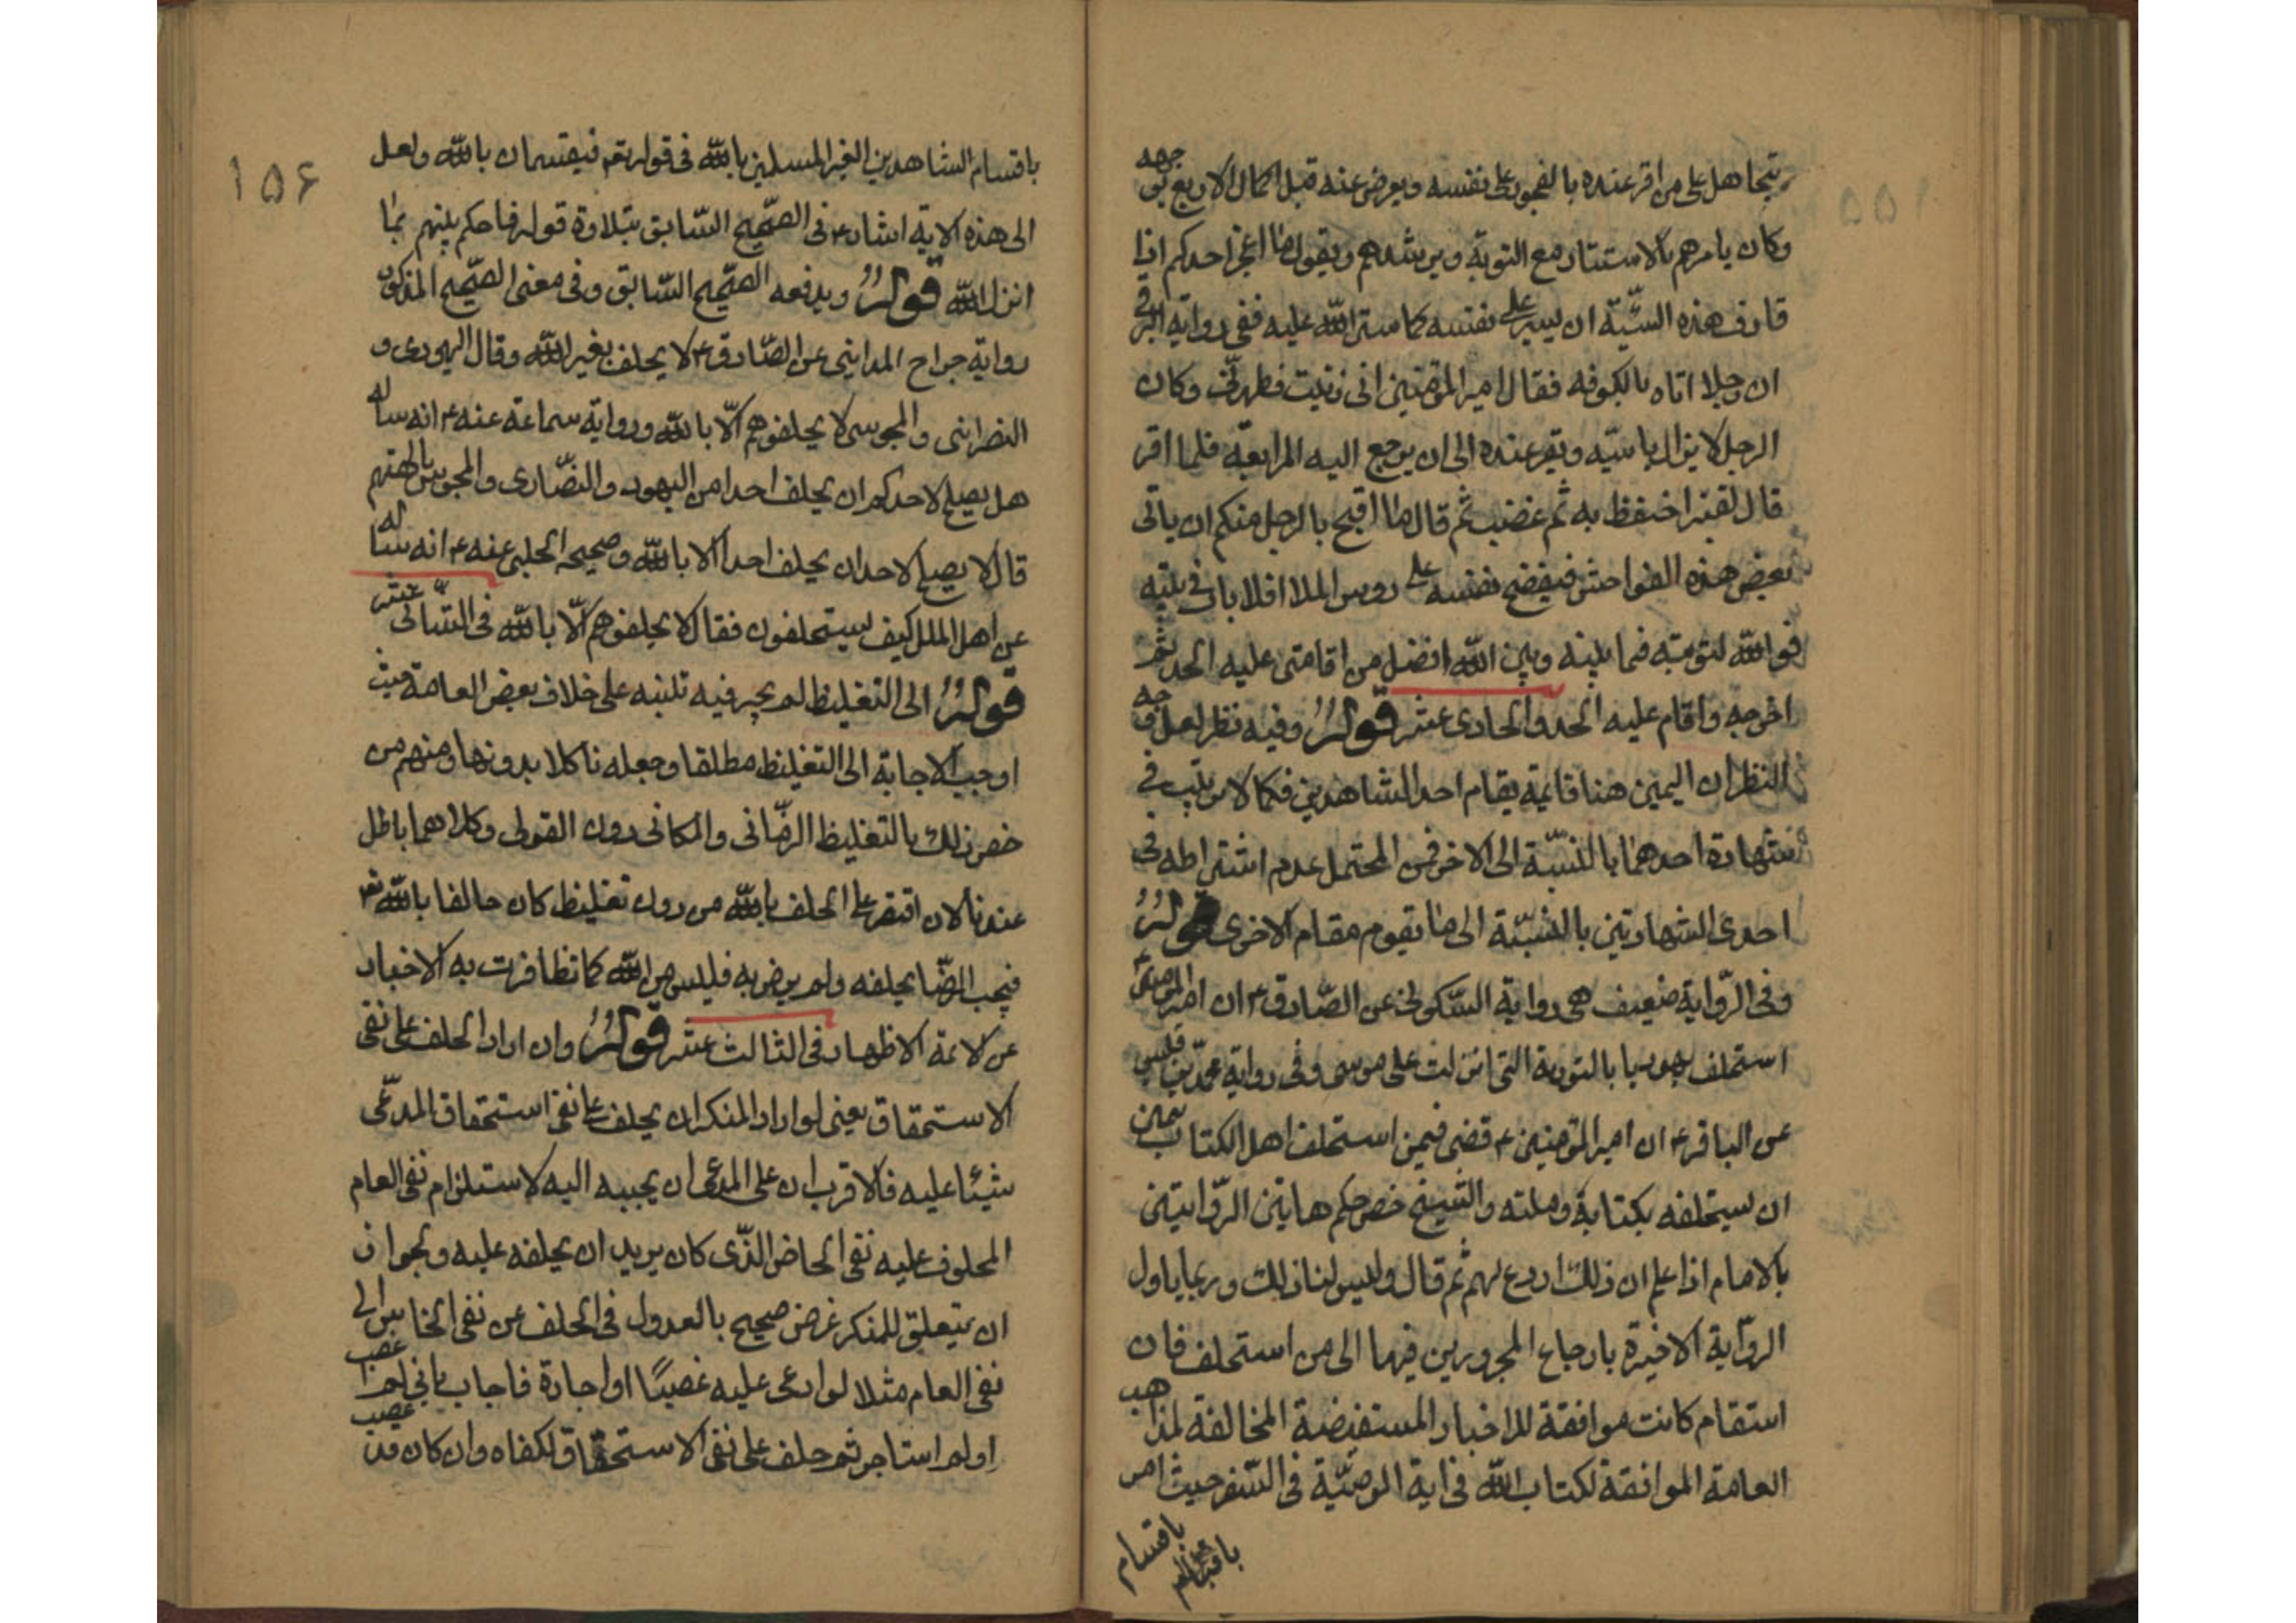 يتجاهل على من اقر عنده بالفجور على نفسه ويعرض عنه قبل اكمال الاربع بوجهه
وكان يامرهم بالاستتار مع التوبة ويرشدهم ويقول ما اعجز احدكم اذا
قارف هذه السيّئة ان يستر على نفسه كما ستر الله عليه ففى رواية البرقى
ان رجلا اتاه بالكوفه فقال امير المؤمنين انى زنيت فطهرنى وكان
الرجل لا يزال ياتيه ويقر عنده الى ان يرجع اليه المرابعة فلما اقر
قال لقنبر احتفظ به ثم غضب ثم قال ما اقبح بالرجل منكم ان ياتى
بعض هذه الفواحش فيفضح نفسه على روس الملا افلا باب فى بيته
فوالله لتوبته فيما بينه وبين الله افضل من اقامتى عليه الحد ثم
اخرجه واقام عليه الحد والحادى عشر قوله وفيه نظر لعل وجه
النظر ان اليمين هنا قايمة بقام احد الشاهدين فكما لا ترتيب فى
شهادة احدهما بالنسبّة الى الاخر فمن المحتمل عدم اشتراطه فى
احدى الشهادتين بالنسبّة الى ما يقوم مقام الاخرى قوله
وفى الرّواية ضعيف هى رواية السّكونى عن الصّادق ع ان امير المومنين ع
استحلف يهوديا بالتورية التى انزلت على موسى وفى رواية محمّد بن قيس
عن الباقر ع ان امير المؤمنين ع قضى فيمن استحلف اهل الكتاب بيمين
ان يستحلفه بكتابة وملته والشيخ خص حكم هاتين الرّوايتين
بالامام اذا علم ان ذلك اردع لهم ثم قال وليس لنا ذلك وربما ياول
الرّواية الاخيرة بارجاع المجرورين فيها الى من استحلف فان
استقام كانت موافقة للاخبار المستفيضة المخالفة لمذاهب
العامة الموافقة لكتاب الله فى اية الوصيّة فى السّفر حيث امر
باقسام
باقسام
١٥٦
باقسام الشاهدين الغير المسلمين بالله فى قوله تعم فيقسمان بالله ولعل
الى هذه الاية اشار ع فى الصّحيح السّابق بتلاوة قوله فاحكم بينهم بما
انزل الله قوله ويدفعه الصّحيح السّابق وفى معنى الصّحيح المذكور
رواية جراح المداينى عن الصّادق ع لا يحلف بغير الله وقال اليهودى و
النصرانى والمجوسى لا يحلفوهم الّا بالله ورواية سماعة عنه ع انه ساله
هل يصلح لاحدكم ان يحلف احدا من اليهود والنصّارى والمجوس بالهتهم
قال لا يصلح لاحد ان يحلف احدا الا بالله وصحيحه الحلبى عنه ع انه ساله
عن اهل الملل كيف يستحلفون فقال لا يحلفوهم الّا بالله فى الثانى عشر
قوله الى التغليظ لم يجبر فيه تنبيه على خلاف بعض العامة حيث
اوجب الاجابة الى التغليظ مطلقا وجعله ناكلا بدونها ومنهم من
خص ذلك بالتغليظ الزمّانى والمكانى دون القولى وكلاهما باطل
عندنا لان اقتصر على الحلف بالله من دون تغليظ كان حالفا بالله تعم
فيجب الرضّا بحلفه ولم يرض به فليس من الله كما تظافرت به الاخبار
عن الائمة الاطهار فى الثالث عشر قوله وان اراد الحلف على نفى
الاستحقاق يعنى لو اراد المنكر ان يحلف على نفى استحقاق المدعّى
شيئا عليه فالاقرب ان على المدعى ان يجيبه اليه لاستلزام نفى العام
المحلوف عليه نفى الخاص الذّى كان يريد ان يحلفه عليه ولجواز
ان يتعلق للمنكر غرض صحيح بالعدول فى الحلف عن نفى الخاص الى
نفى العام مثلا لو ادعى عليه غصبًا او اجارة فاجاب بانى لم اغصب
او لم استاجر ثم حلف على نفى الاستحقاق لكفاه وان كان قد